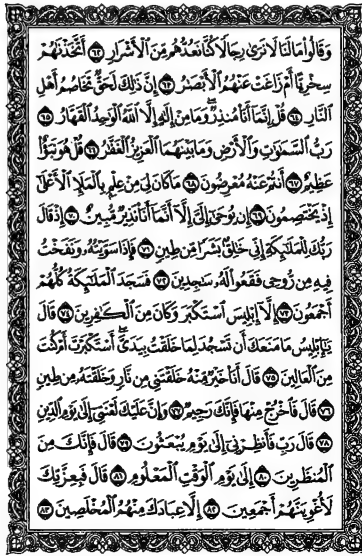 وَقَالُوا۟ مَا لَنَا لَا نَرَىٰ رِجَالًا كُنَّا نَعُدُّهُم مِّنَ ٱلْأَشْرَارِ ٦٢ أَتَّخَذْنَٰهُمْ
سِخْرِيًّا أَمْ زَاغَتْ عَنْهُمُ ٱلْأَبْصَٰرُ ٦٣ إِنَّ ذَٰلِكَ لَحَقٌّ تَخَاصُمُ أَهْلِ
ٱلنَّارِ ٦٤ قُلْ إِنَّمَآ أَنَا۠ مُنذِرٌ وَمَا مِنْ إِلَٰهٍ إِلَّا ٱللَّهُ ٱلْوَٰحِدُ ٱلْقَهَّارُ ٦٥
رَبُّ ٱلسَّمَٰوَٰتِ وَٱلْأَرْضِ وَمَا بَيْنَهُمَا ٱلْعَزِيزُ ٱلْغَفَّٰرُ ٦٦ قُلْ هُوَ نَبَؤٌا۟
عَظِيمٌ ٦٧ أَنتُمْ عَنْهُ مُعْرِضُونَ ٦٨ مَا كَانَ لِىَ مِنْ عِلْمٍۭ بِٱلْمَلَإِ ٱلْأَعْلَىٰٓ
إِذْ يَخْتَصِمُونَ ٦٩ إِن يُوحَىٰٓ إِلَىَّ إِلَّآ أَنَّمَآ أَنَا۠ نَذِيرٌ مُّبِينٌ ٧٠ إِذْ قَالَ
رَبُّكَ لِلْمَلَٰٓئِكَةِ إِنِّى خَٰلِقٌۢ بَشَرًا مِّن طِينٍ ٧١ فَإِذَا سَوَّيْتُهُۥ وَنَفَخْتُ
فِيهِ مِن رُّوحِى فَقَعُوا۟ لَهُۥ سَٰجِدِينَ ٧٢ فَسَجَدَ ٱلْمَلَٰٓئِكَةُ كُلُّهُمْ
أَجْمَعُونَ ٧٣ إِلَّآ إِبْلِيسَ ٱسْتَكْبَرَ وَكَانَ مِنَ ٱلْكَٰفِرِينَ ٧٤ قَالَ
يَٰٓإِبْلِيسُ مَا مَنَعَكَ أَن تَسْجُدَ لِمَا خَلَقْتُ بِيَدَىَّ أَسْتَكْبَرْتَ أَمْ كُنتَ
مِنَ ٱلْعَالِينَ ٧٥ قَالَ أَنَا۠ خَيْرٌ مِّنْهُ خَلَقْتَنِى مِن نَّارٍ وَخَلَقْتَهُۥ مِن طِينٍ
٧٦ قَالَ فَٱخْرُجْ مِنْهَا فَإِنَّكَ رَجِيمٌ ٧٧ وَإِنَّ عَلَيْكَ لَعْنَتِىٓ إِلَىٰ يَوْمِ ٱلدِّينِ
٧٨ قَالَ رَبِّ فَأَنظِرْنِىٓ إِلَىٰ يَوْمِ يُبْعَثُونَ ٧٩ قَالَ فَإِنَّكَ مِنَ
ٱلْمُنظَرِينَ ٨٠ إِلَىٰ يَوْمِ ٱلْوَقْتِ ٱلْمَعْلُومِ ٨١ قَالَ فَبِعِزَّتِكَ
لَأُغْوِيَنَّهُمْ أَجْمَعِينَ ٨٢ إِلَّا عِبَادَكَ مِنْهُمُ ٱلْمُخْلَصِينَ ٨٣